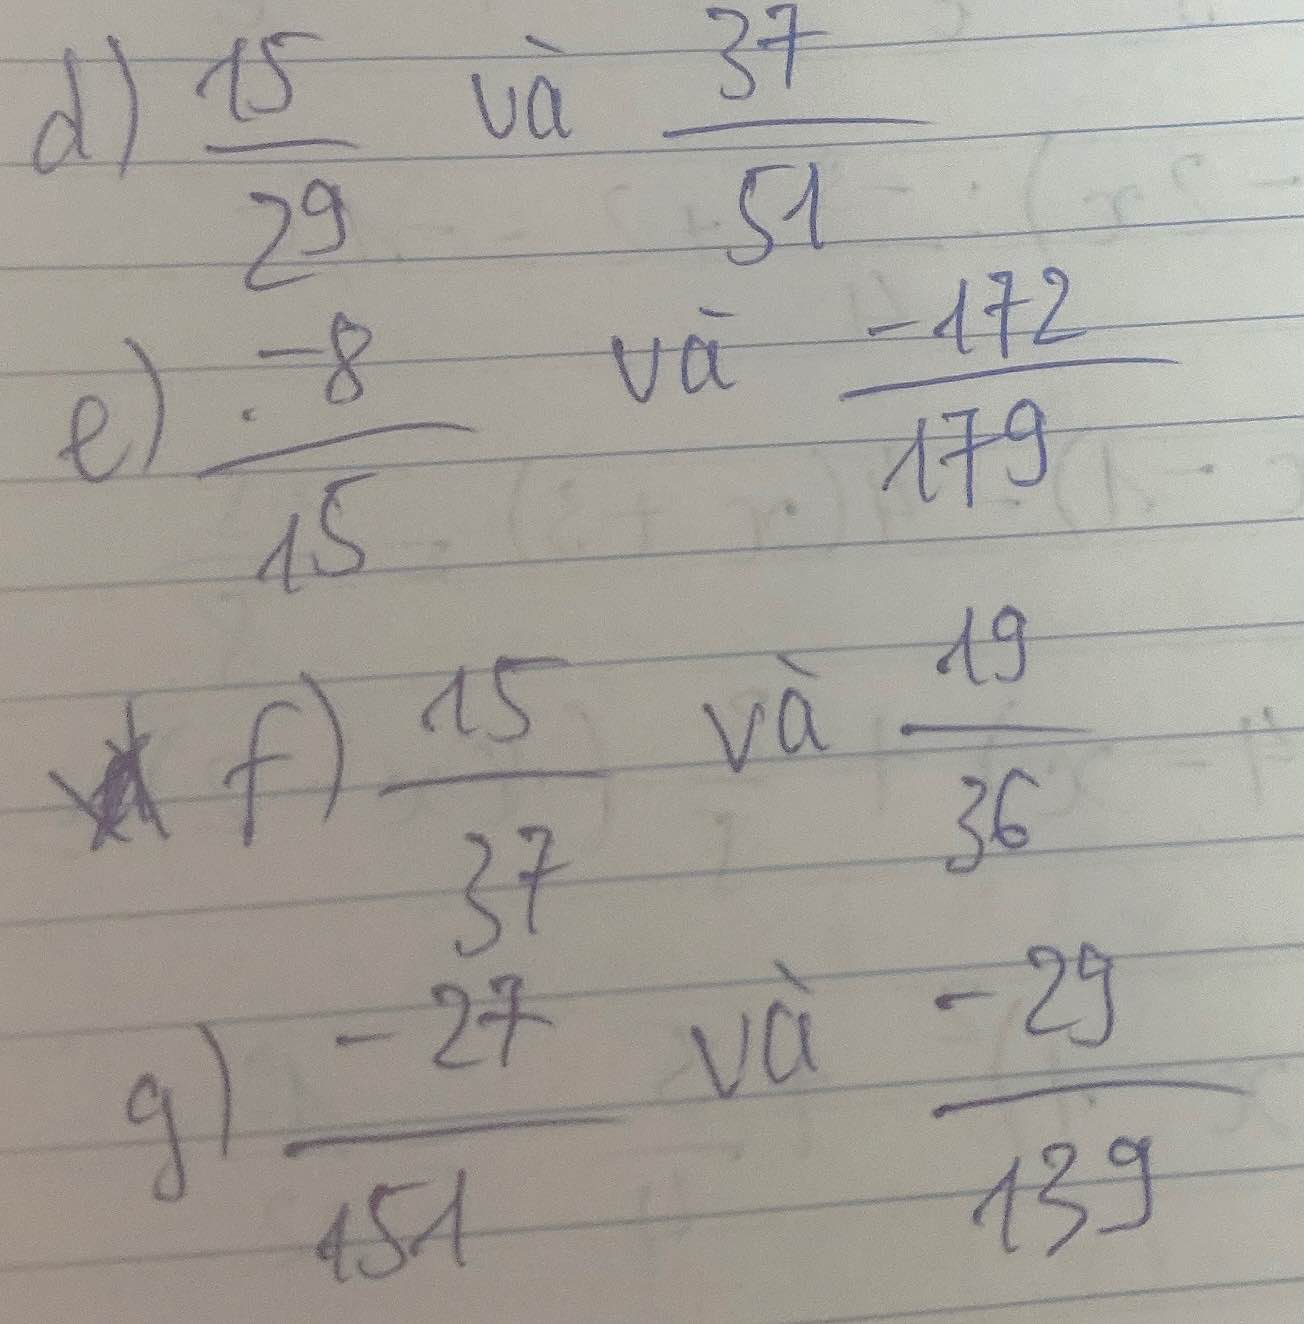 d) 15/29 và 37/51
e) -8/15 và -172/179
f) 15/37 và 19/36
g) -27/151 và -29/139